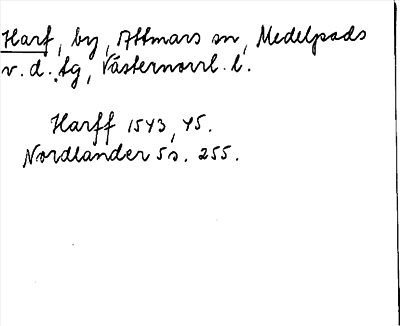 Harf, by, Attmars sn, Medelpads
v. d. tg, Västernorrl. l.
Harff 1543, 45.
Nordlander 5 s. 255.